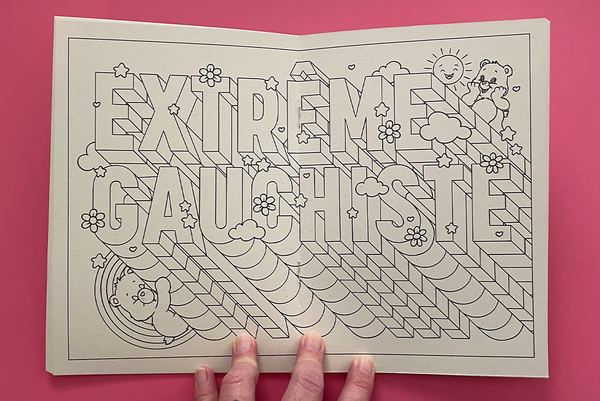 EXTRÊME
GAUCHISTE